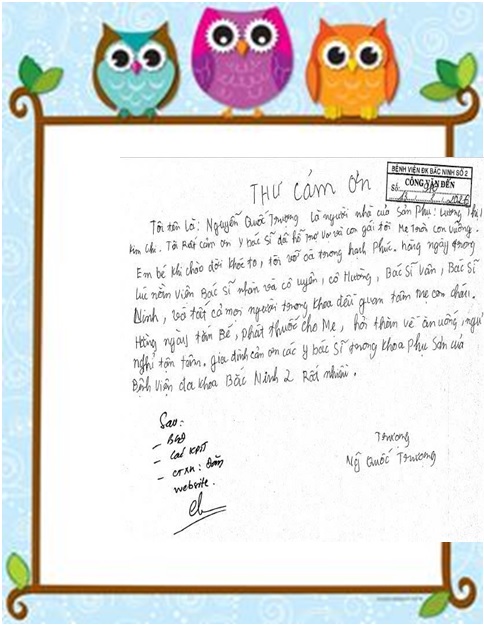 THƯ CÁM ƠN
BỆNH VIỆN ĐK BẮC NINH SỐ 2
CÔNG VĂN ĐẾN
Số:
Tôi tên là: Nguyễn Quốc Trương là người nhà của Sản Phụ: Lương Thị
Kim Chi. Tôi Rất cảm ơn y bác sĩ đã hỗ trợ vợ và con gái tôi Mẹ Tròn con vuông.
Em bé khi chào đời khóc to, tôi vỡ oà trong hạnh Phúc. hàng ngày trong
lúc nằm viện Bác sĩ nhân và cô uyên, cô Hường, Bác sĩ Vân, Bác sĩ
Ninh, và tất cả mọi người trong khoa đều quan tâm mẹ con cháu.
Hàng ngày tắm Bé, phát thuốc cho Mẹ, hỏi thăm về ăn uống, ngủ
nghỉ tận tâm. gia đình cảm ơn các y bác sĩ trong khoa Phụ Sản của
Bệnh viện đa khoa Bắc Ninh 2 Rất nhiều.
Sao:
- BGĐ
- Các KPTT
- CTXH: Đăng
website.
Trương
Ngô Quốc Trương